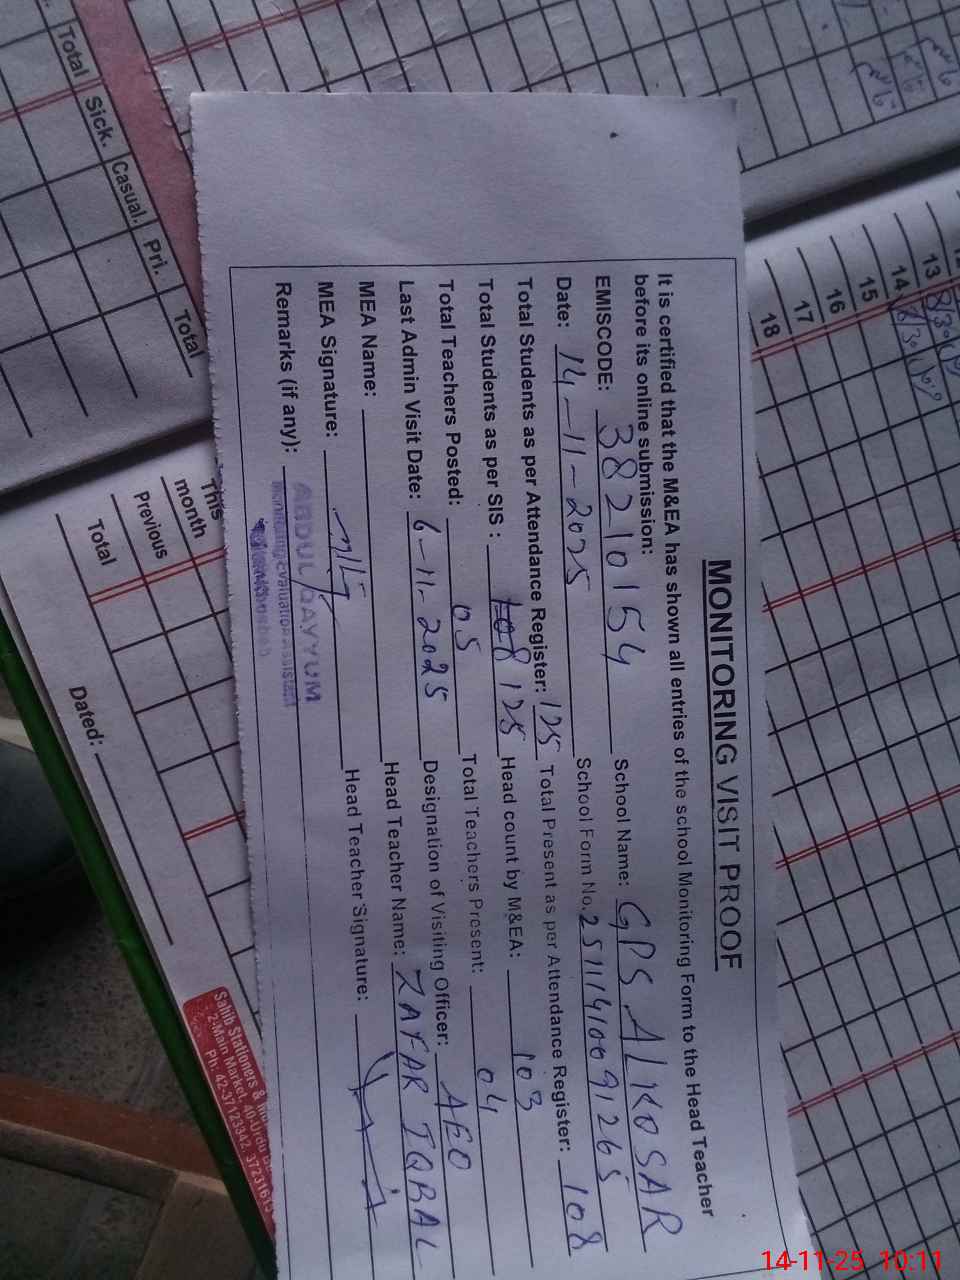 MONITORING VISIT PROOF
It is certified that the M&EA has shown all entries of the school Monitoring Form to the Head Teacher
before its online submission:
EMISCODE: 38210154 School Name: GPS. ALKOSAR
Date: 14-11-2025 School Form No. 25111410091265
Total Students as per Attendance Register: 125 Total Present as per Attendance Register: 108
Total Students as per SIS : 108 125 Head count by M&EA: 103
Total Teachers Posted: 05 Total Teachers Present: 04
Last Admin Visit Date: 6-11-2025 Designation of Visiting Officer: AEO
MEA Name: Head Teacher Name: ZAFAR IQBAL
MEA Signature: Head Teacher Signature:
Remarks (if any):
ABDUL QAYYUM
Monitoring Evaluation Assistant
Total Sick. Casual. Pri. Total
13
14
15
16
17
18
This
month
Previous
Total
Dated:
Sahib Stationers &
2-Main Market, 40-Urdu
Ph: 42-37123342, 3723161
14-11-25 10:11